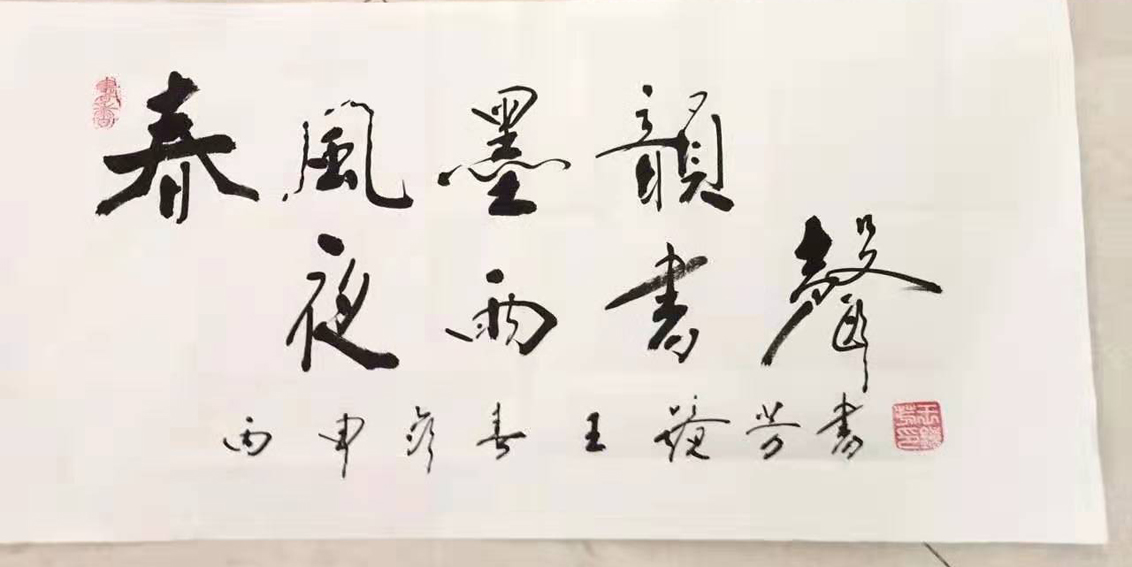 春風墨韻
夜雨書聲
丙申 春王 芳書